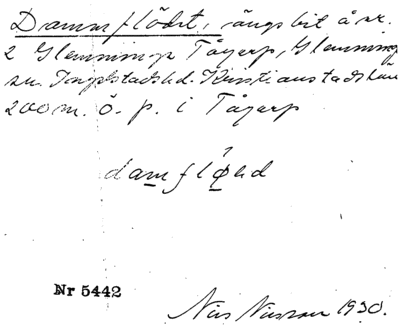 Dammflödet, ängsbit å nr.
2 Glemminge Tågarp, Glemminge
sn. Ingelstads hd. Kristianstads län
200 m. ö. p. i Tågarp
damfløed
Nr 5442
Nils Nilsson 1930.